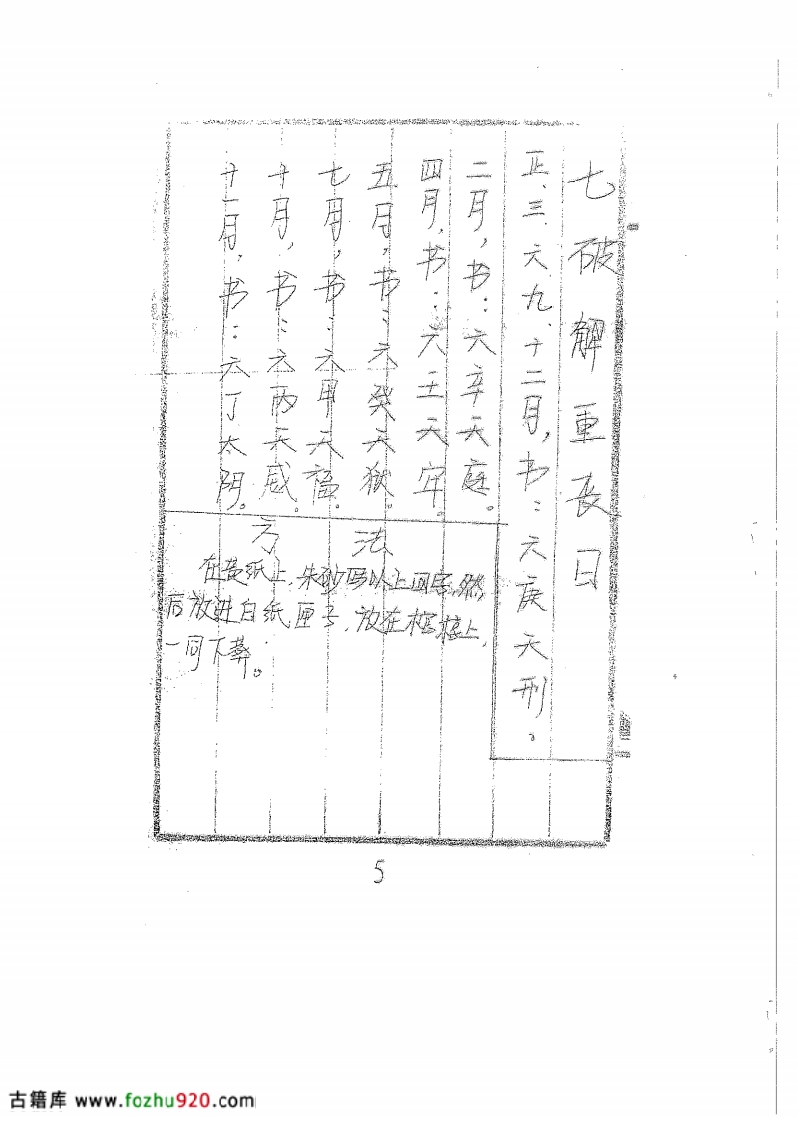 七破解重丧日
正、三、六、九、十二月,书:六庚天刑。
二月,书:六辛天庭。
四月,书:六壬天牢。
五月,书:六癸天狱。
七月,书:六甲天福。
十月,书:六丙天威。
十一月,书:六丁太阴。
方法
在黄纸上,朱砂写以上四字,然
后放进白纸匣子,放在棺上,
一同下葬。
5
古籍库 www.fozhu920.com